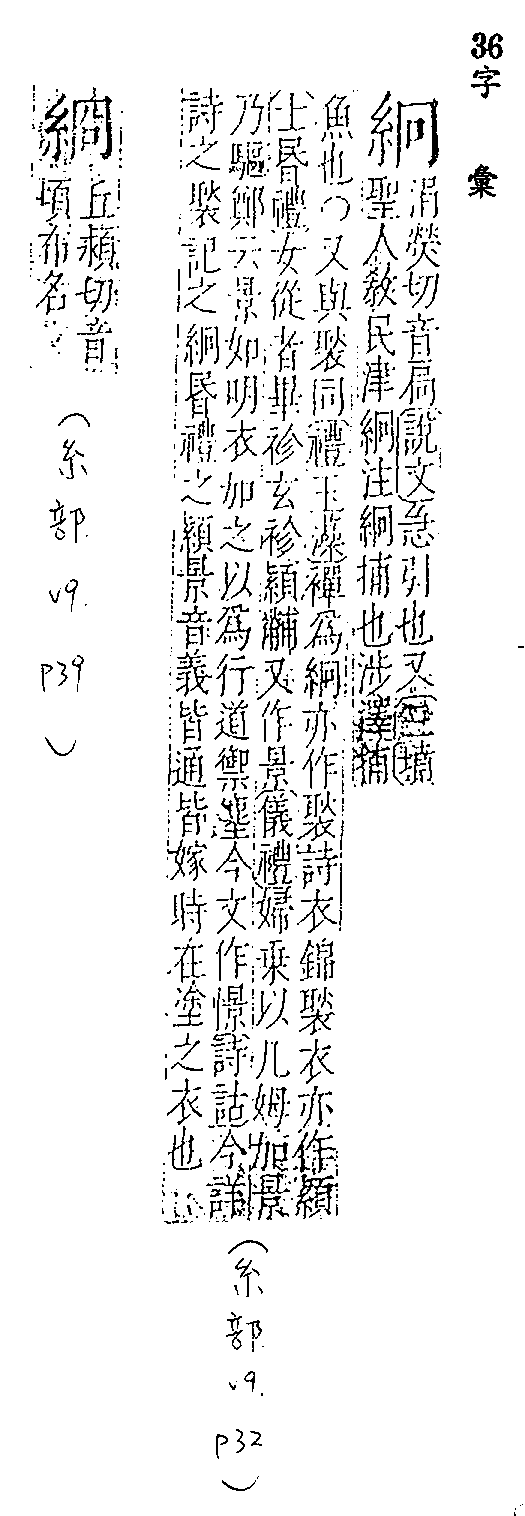 36字彙
絅 涓熒切音扃說文急引也又三墳
聖人敎民津絅注絅捕也涉澤捕
魚也○又與褧同禮玉藻襌爲絅亦作褧詩衣錦褧衣亦作穎
士昏禮女從者畢袗玄袗穎黼又作景儀禮婦乘以几姆加景
乃驅鄭云景如明衣加之以爲行道禦塵今文作憬詩詁今詳
詩之褧記之絅昏禮之穎景音義皆通皆嫁時在塗之衣也
(糸部 v9. p32)
丘熲切音
頃布名
(糸部 v9. p39)